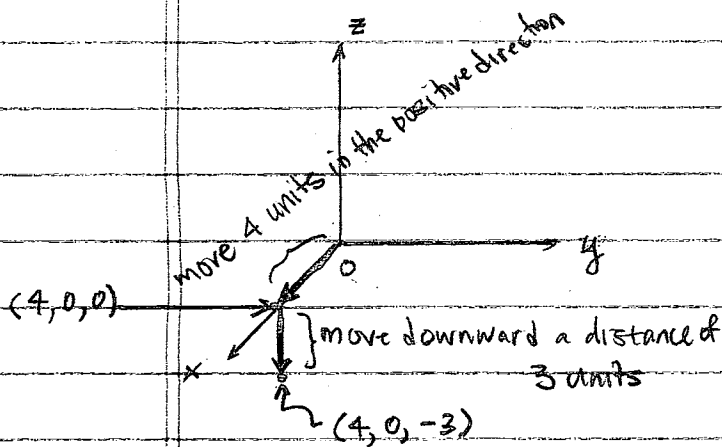 z
move 4 units in the positive direction
y
0
(4,0,0)
move downward a distance of
3 units
x
(4, 0, -3)